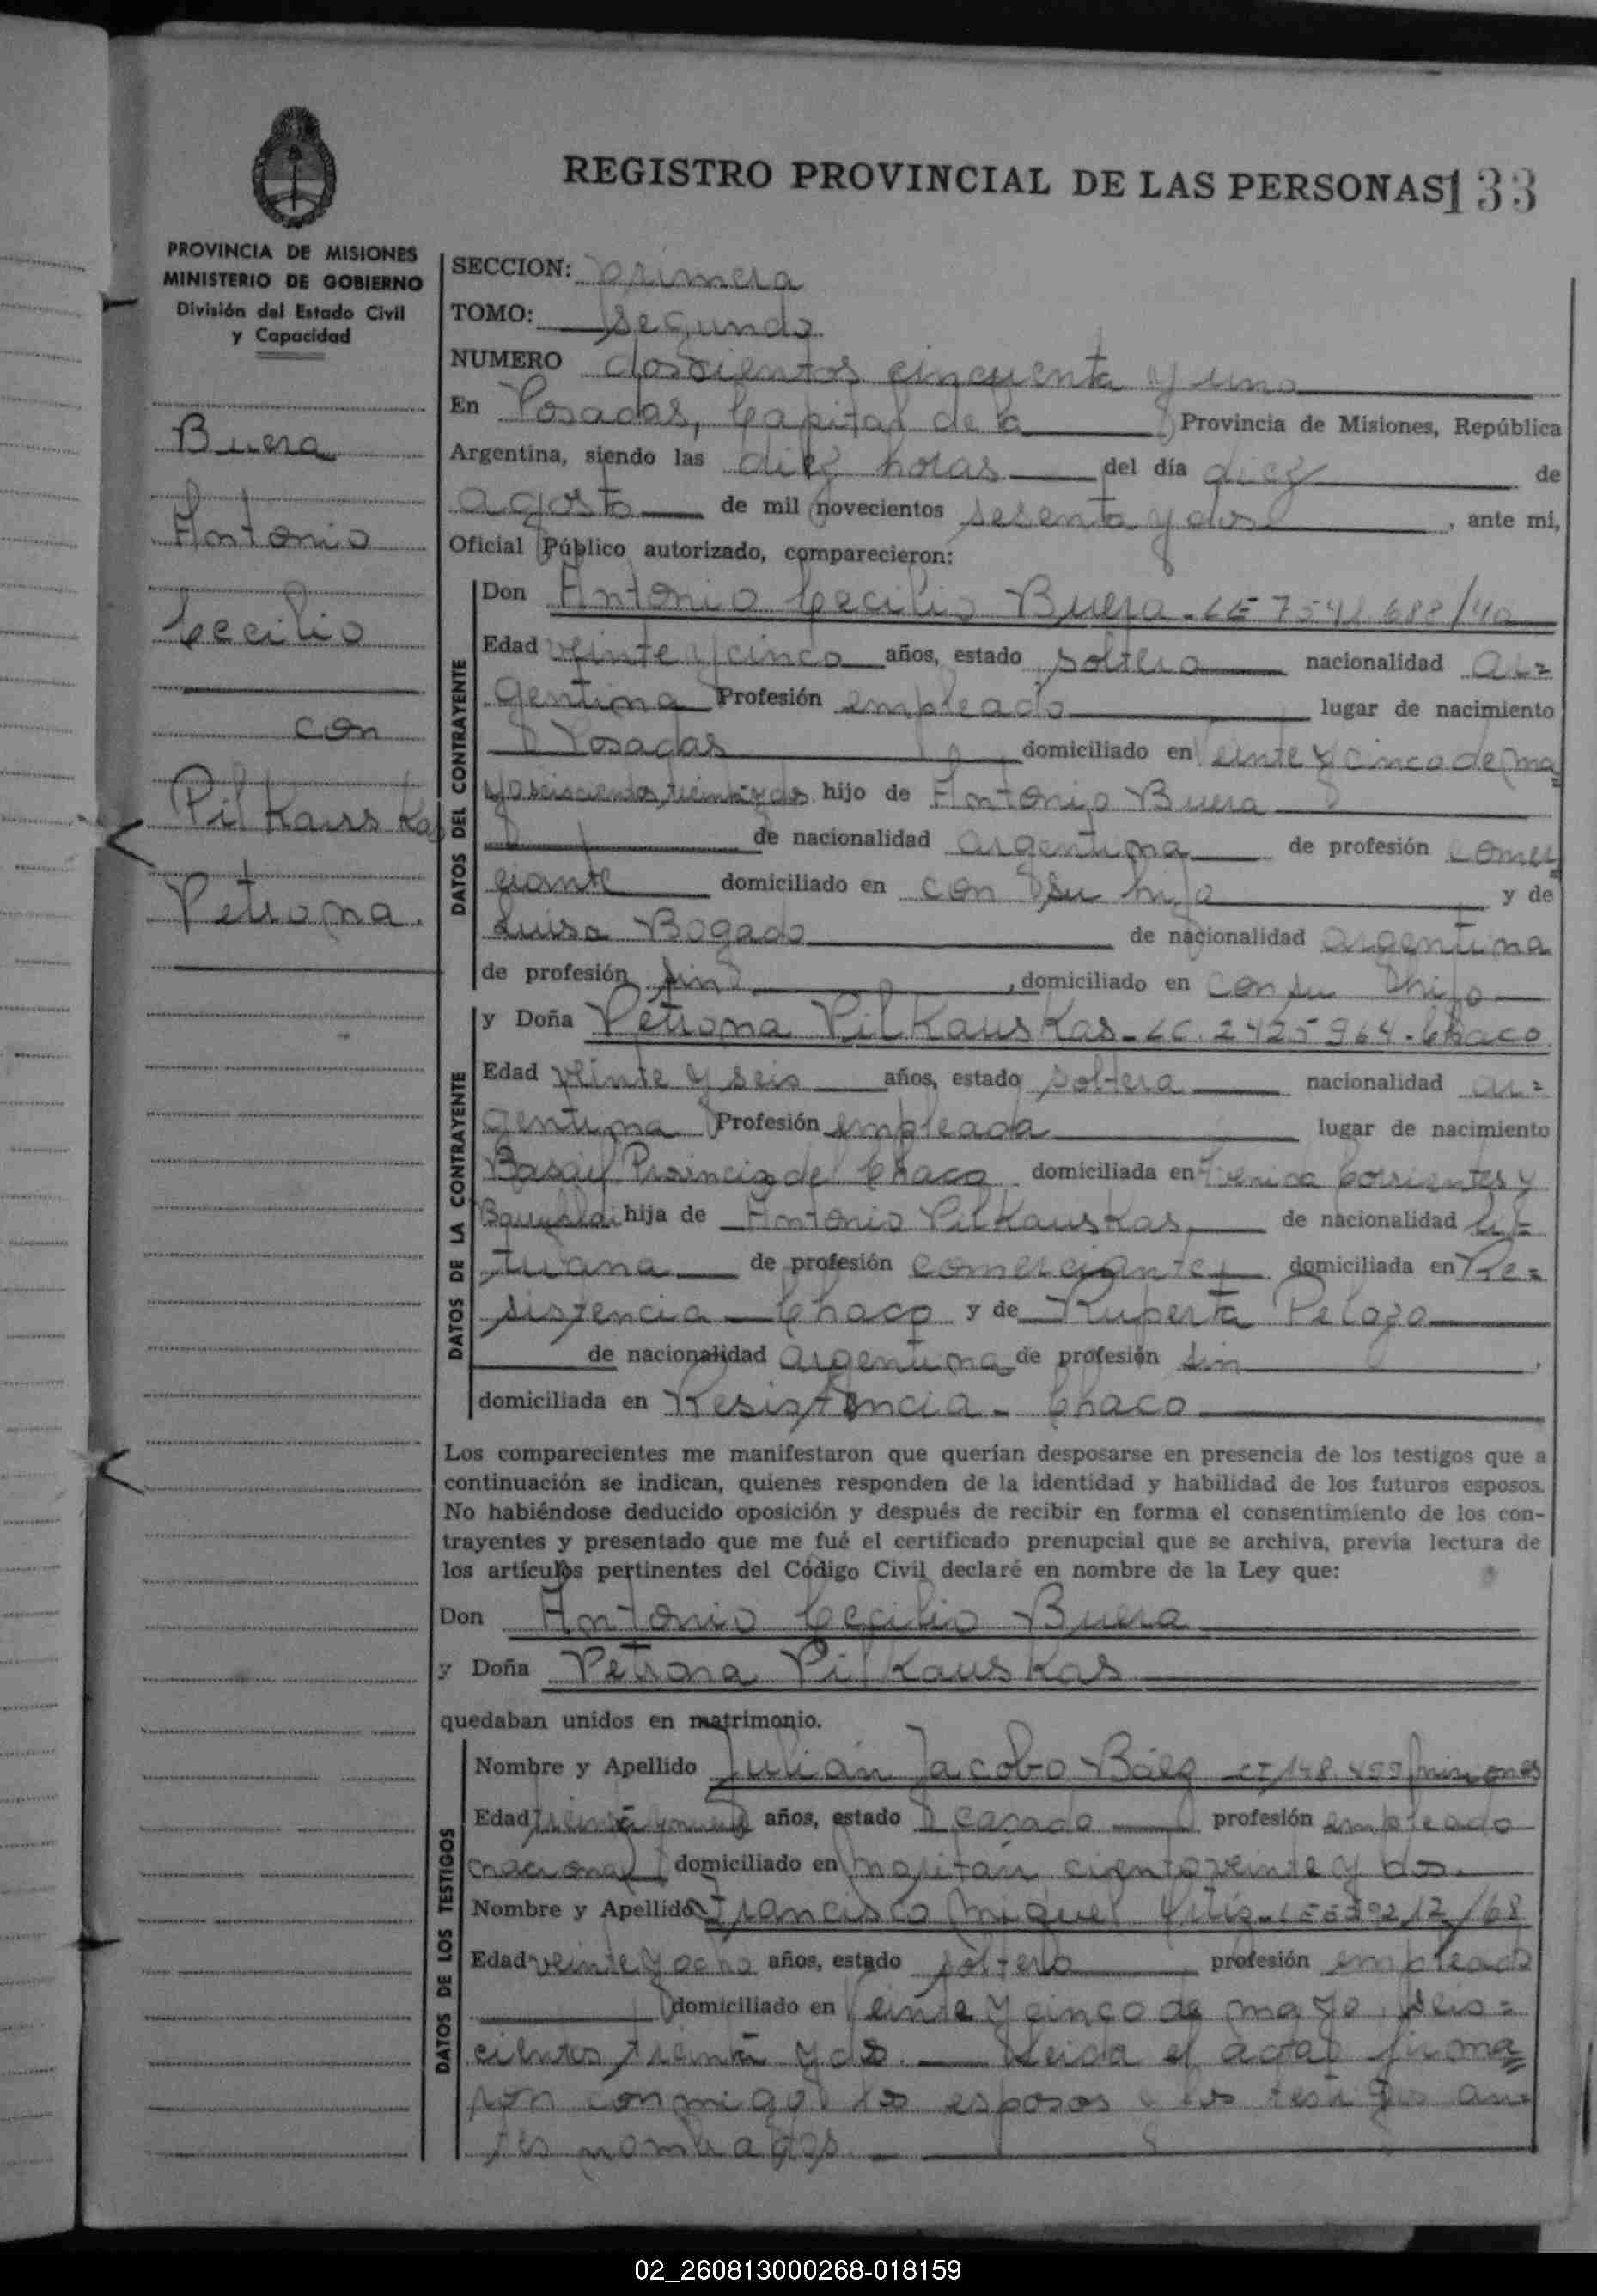 REGISTRO PROVINCIAL DE LAS PERSONAS 133
PROVINCIA DE MISIONES
MINISTERIO DE GOBIERNO
División del Estado Civil
y Capacidad
Buera
Antonio
Cecilio
con
Pilkauskas
Petrona.
SECCION: primera
TOMO: segundo
NUMERO doscientos cincuenta y uno
En Posadas, Capital de la Provincia de Misiones, República
Argentina, siendo las diez horas del día diez de
agosto de mil novecientos sesenta y dos, ante mi,
Oficial Público autorizado, comparecieron:
DATOS DEL CONTRAYENTE
Don Antonio Cecilio Buera - LE 7541.688/40
Edad veinte y cinco años, estado soltero nacionalidad ar=
gentina Profesión empleado lugar de nacimiento
Posadas domiciliado en Veinte y cinco de ma=
yo seiscientos treinta y dos hijo de Antonio Buera
de nacionalidad argentina de profesión comer=
ciante domiciliado en con su hijo y de
Luisa Bogado de nacionalidad argentina
de profesión sin, domiciliado en con su hijo
DATOS DE LA CONTRAYENTE
y Doña Petrona Pilkauskas - LC. 2425964 - Chaco
Edad veinte y seis años, estado soltera nacionalidad ar=
gentina Profesión empleada lugar de nacimiento
Basail Provincia del Chaco domiciliada en Corrientes y
hija de Antonio Pilkauskas, de nacionalidad li=
tuana de profesión comerciante, domiciliada en Re=
sistencia - Chaco y de Ruperta Pelozo
de nacionalidad argentina de profesión sin,
domiciliada en Resistencia - Chaco
Los comparecientes me manifestaron que querían desposarse en presencia de los testigos que a
continuación se indican, quienes responden de la identidad y habilidad de los futuros esposos.
No habiéndose deducido oposición y después de recibir en forma el consentimiento de los con-
trayentes y presentado que me fué el certificado prenupcial que se archiva, previa lectura de
los artículos pertinentes del Código Civil declaré en nombre de la Ley que:
Don Antonio Cecilio Buera
y Doña Petrona Pilkauskas
quedaban unidos en matrimonio.
DATOS DE LOS TESTIGOS
Nombre y Apellido Julián Jacobo Báez - CI 148. Misiones
Edad treinta y nueve años, estado casado profesión empleado
nacional domiciliado en ciento veinte y dos.
Nombre y Apellido Francisco Miguel
Edad veinte y ocho años, estado soltero profesión empleado
domiciliado en Veinte y cinco de mayo seis=
cientos treinta y dos. Leida el acta firma=
ron conmigo los esposos y los testigos an=
tes nombrados. -
02_260813000268-018159